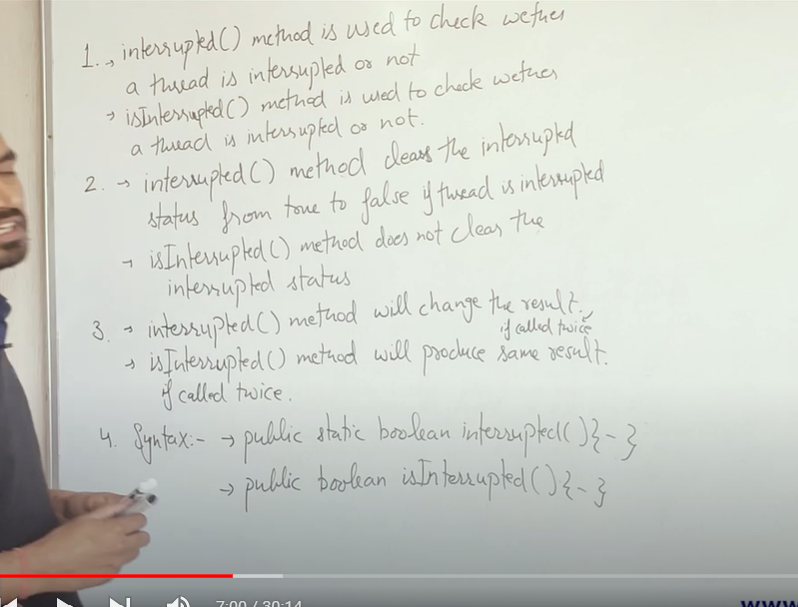 1. → interrupted() method is used to check wether
a thread is interrupted or not
→ isInterrupted() method is used to check wether
a thread is interrupted or not.
2. → interrupted() method clears the interrupted
status from true to false if thread is interrupted
→ isInterrupted() method does not clear the
interrupted status
3. → interrupted() method will change the result.
if called twice
→ isInterrupted() method will produce same result.
if called twice.
4. Syntax:- → public static boolean interrupted(){-}
→ public boolean isInterrupted(){-}
7:00 / 30:14
www